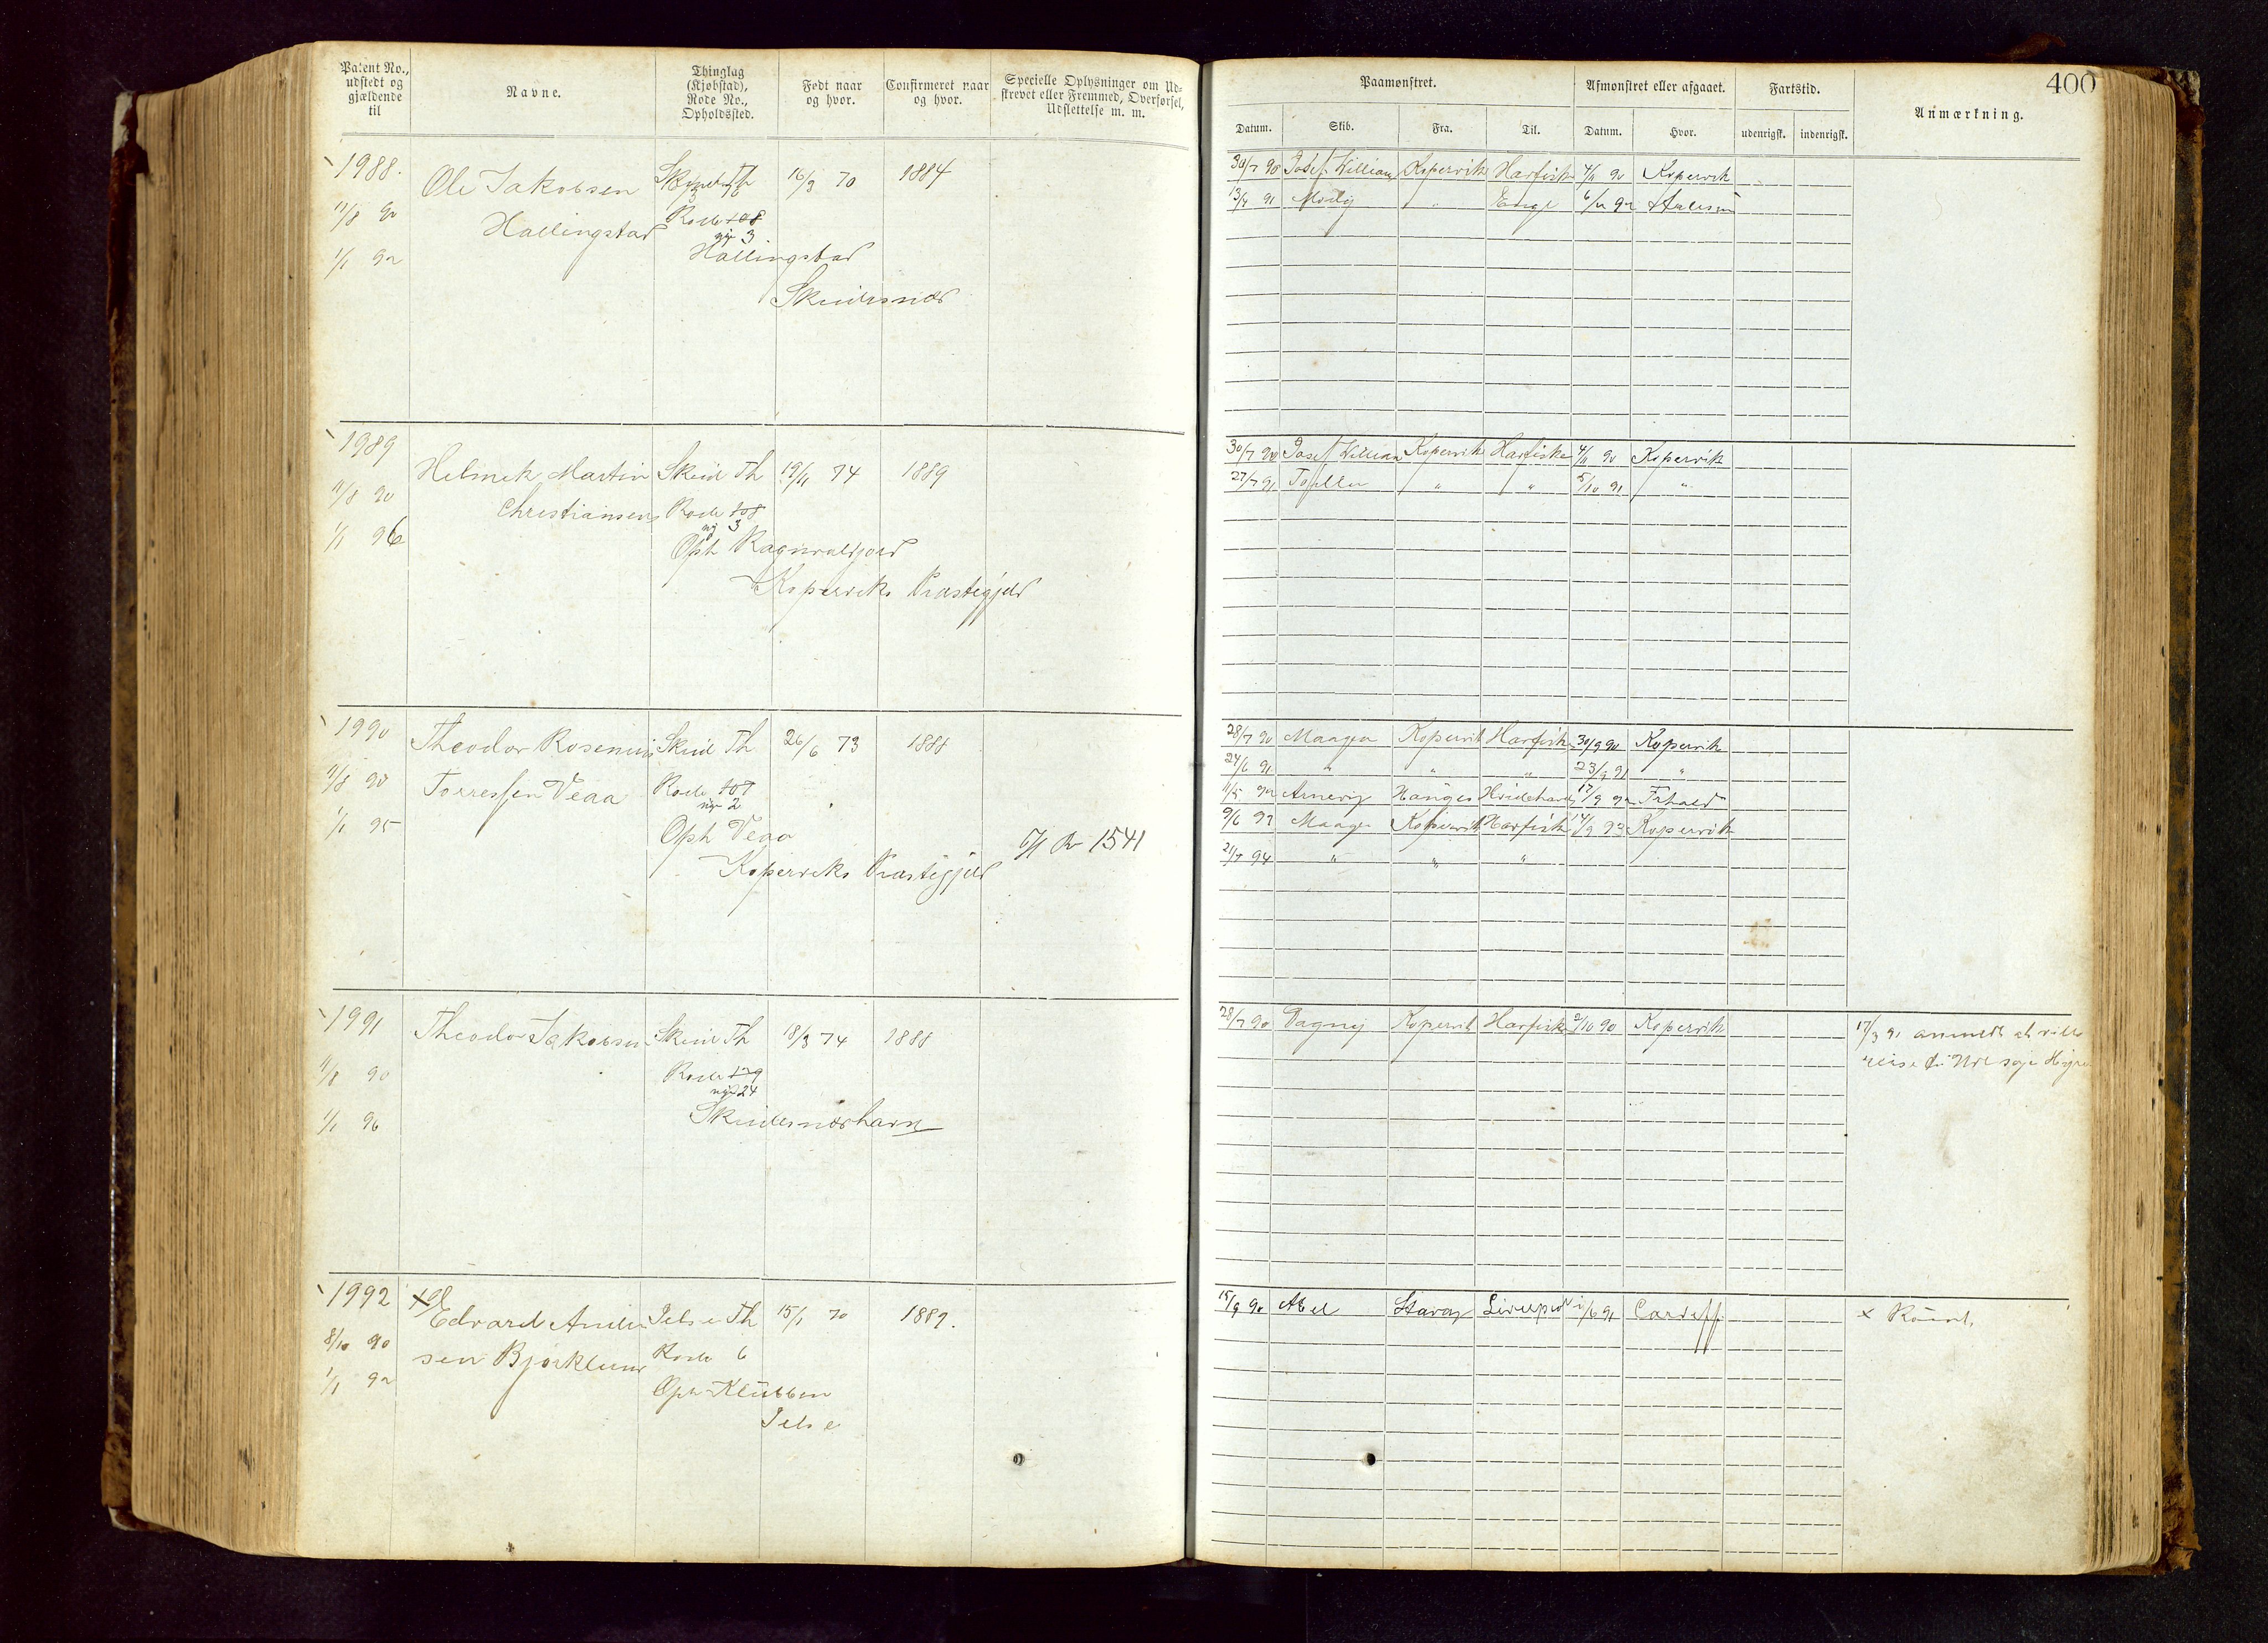 Patent No., udstedt og gjældende til
Navne.
Thinglag (Kjøbstad), Rode No., Opholdssted.
Født naar og hvor.
Confirmeret naar og hvor.
Specielle Oplysninger om Udskrevet eller Fremmed, Overførsel, Udslettelse m. m.
Paamønstret.
Afmønstret eller afgaaet.
Fartstid.
Anmærkning.
400
Datum. Skib. Fra. Til. Datum. Hvor. udenrigsk. indenrigsk.
1988. Ole Jakobsen 16/3 70 1884
11/8 90 Hallingstad Rode 108
ny 3
1/1 92 Hallingstad
Skudesnæs
30/7 90 Josef William Kopervik Harfisk 4/11 90 Kopervik
13/4 91 Modig " 92
1989 Helmik Martin Skud Th 19/11 74 1889
11/8 90 Christiansen Rode 108
ny 3
1/1 96 Oph Ragnvaldjord
Koperviks Præstegjeld
30/7 90 Josef William Kopervik Harfiske 4/11 90 Kopervik
27/7 91 " " 5/10 91 "
1990 Theodor Rosenius Skud Th 26/6 73 1888
11/8 90 Torressen Veaa Rode 107
ny 2
1/1 95 Oph Veaa 1541
Koperviks Præstegjeld
28/7 90 Maagen Kopervik Harfisk 30/9 90 Kopervik
24/6 91 " " " 23/9 91 "
11/5 92 Hauges 17/9 92
9/6 93 Maagen Kopervik Harfisk 14/9 93 Kopervik
21/7 94 " " "
1991 Theodor Jakobsen Skud Th 18/3 74 1888
11/8 90 Rode 129
ny 24
1/1 96 Skudesnæshavn
28/7 90 Dagny Kopervik Harfisk 2/10 90 Kopervik 17/3 91 anmeldt at ville
reise
1992 Edvard Ander Jelse Th 15/1 70 1889.
8/10 90 sen Bjørklund Rode 6
1/1 92 Oph Klubben
Jelse
15/9 90 Abel Stavag Liverpool 6 91 Cardiff. x Rømt.